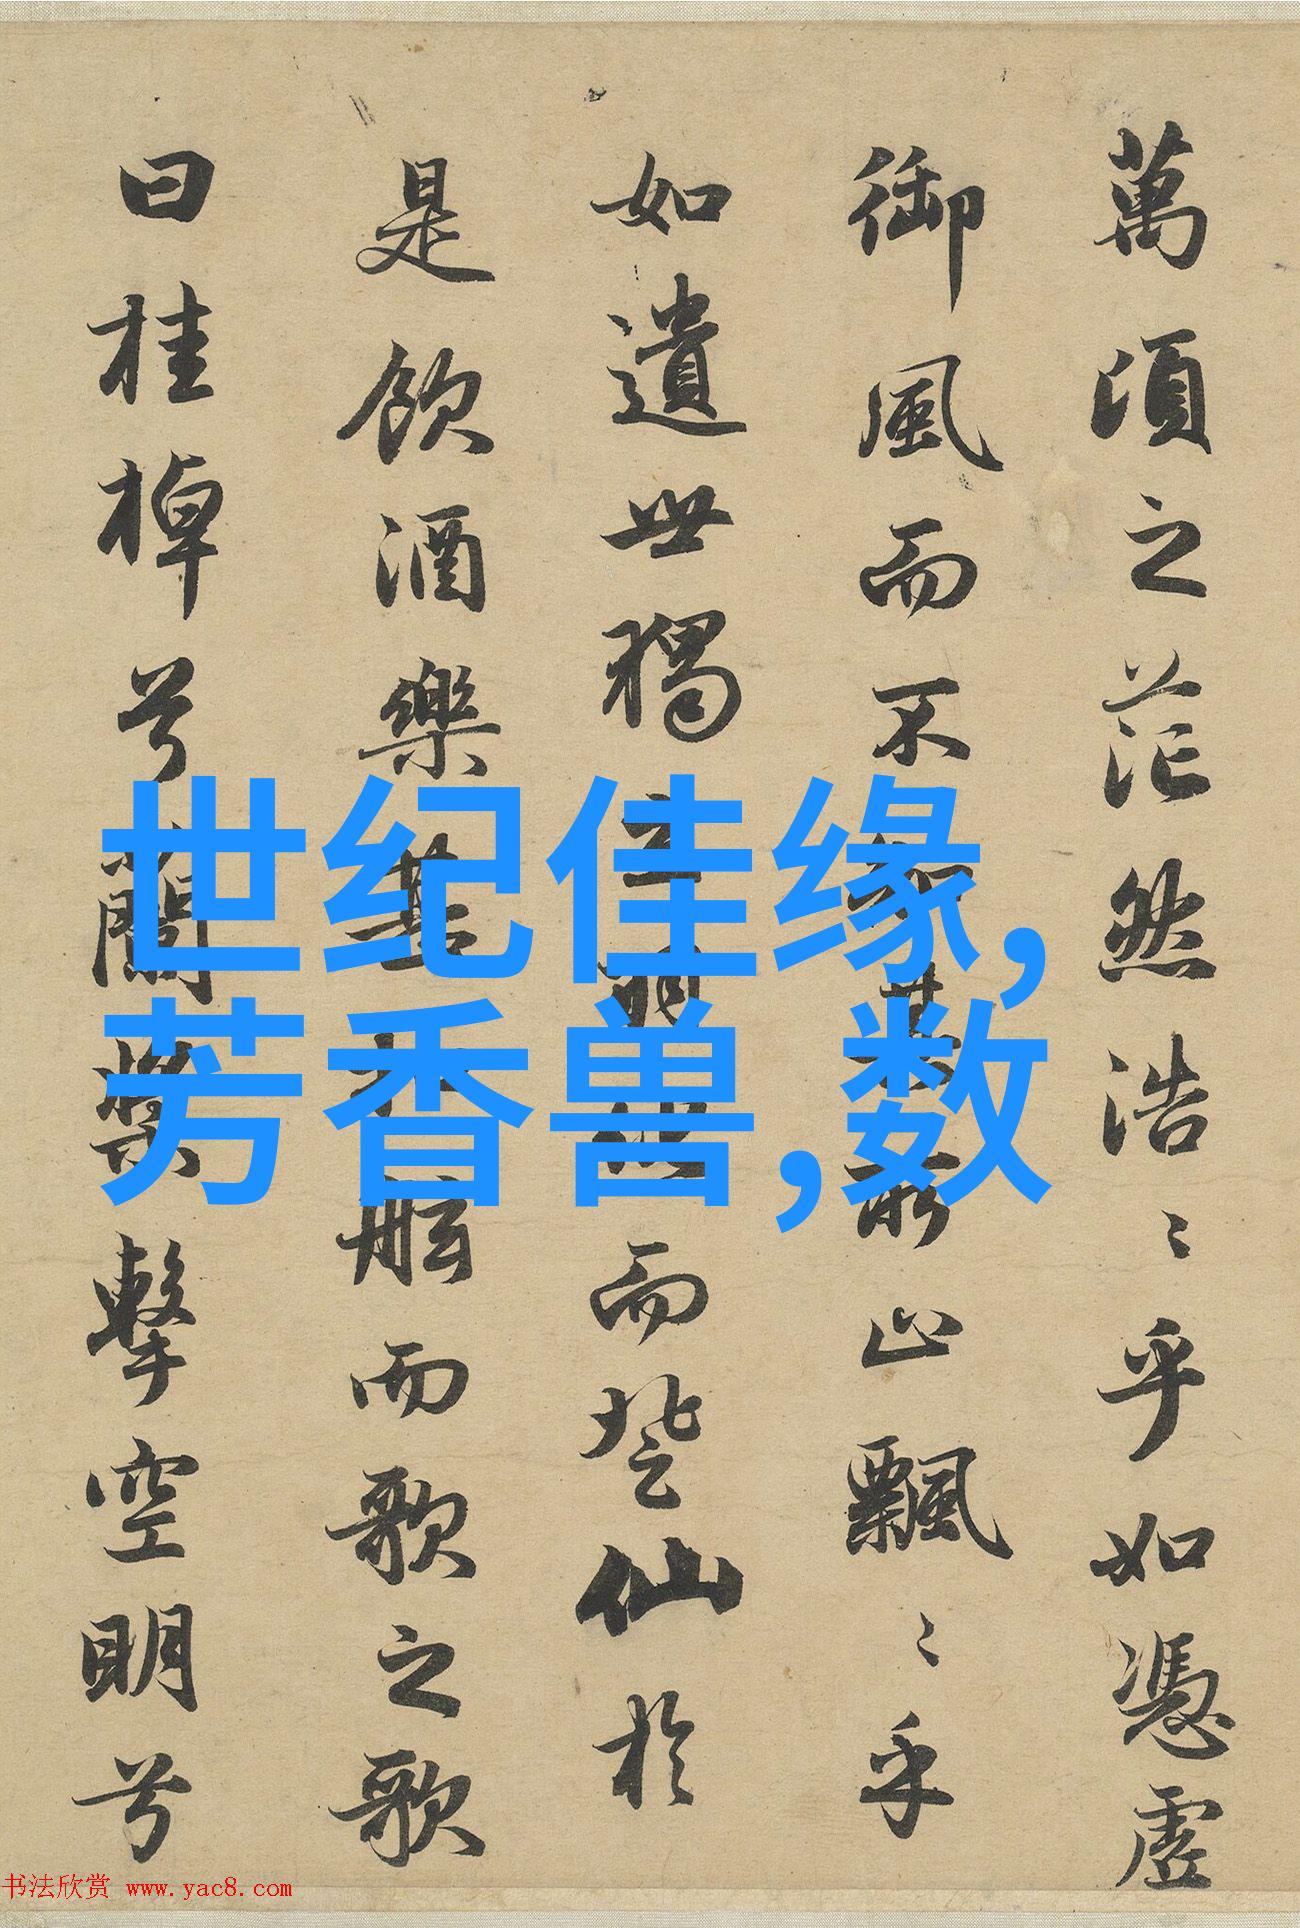 萬頃之茫然浩〻乎如憑虛
御風而不知其所止飄〻乎
如遺世獨立羽化而登仙於
是飲酒樂甚扣舷而歌之歌
曰桂棹兮蘭槳擊空明兮
世纪佳缘,
芳香兽,数
书法欣赏 www.yac8.com